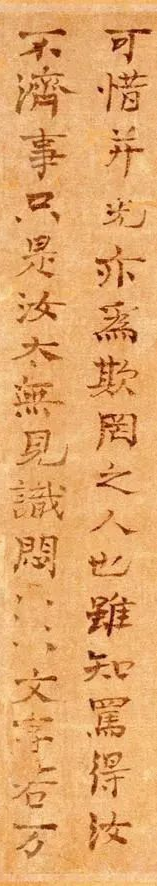 可惜并光亦爲欺罔之人也雖知罵得汝
不濟事只是汝太無見識悶〻〻文字右万